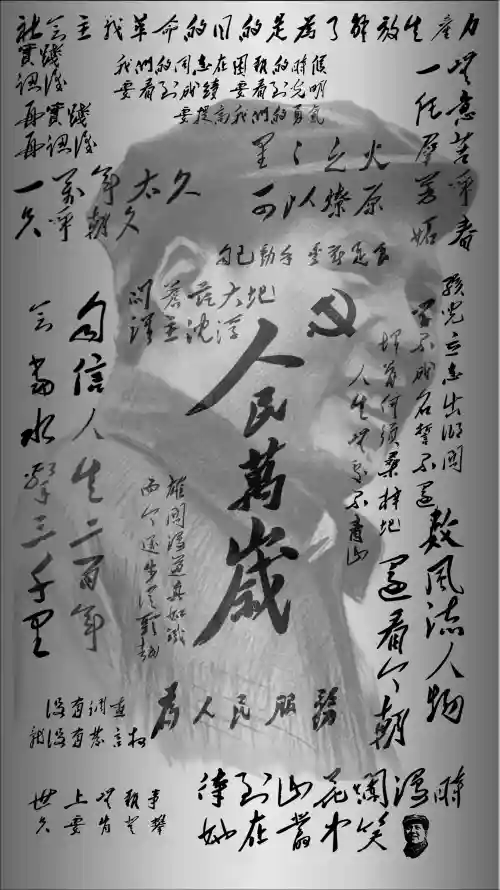 社会主義革命的目的是為了解放生產力
實踐
認識
再實踐
再認識
我們的同志在困難的時候
要看到成績 要看到光明
要提高我們的勇氣
無意苦爭春
一任群芳妒
星星之火
可以燎原
一萬年太久
只爭朝夕
自己動手 豐衣足食
問蒼茫大地
誰主沈浮
自信人生二百年
会當水擊三千里
人民萬歲
孩兒立志出鄉関
學不成名誓不還
埋骨何須桑梓地
人生無處不青山
數風流人物
還看今朝
雄關漫道真如鐵
而今邁步從頭越
沒有調查
就沒有發言權
為人民服務
世上無難事
只要肯登攀
待到山花爛漫時
她在叢中笑